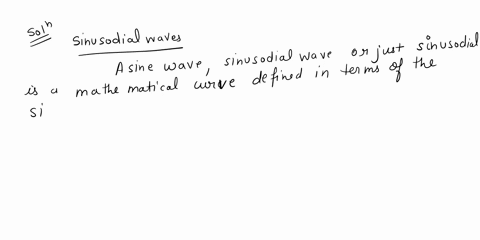 Solⁿ
Sinusodial waves
A sine wave, sinusodial wave or just sinusodial
is a mathematical curve defined in terms of the
si